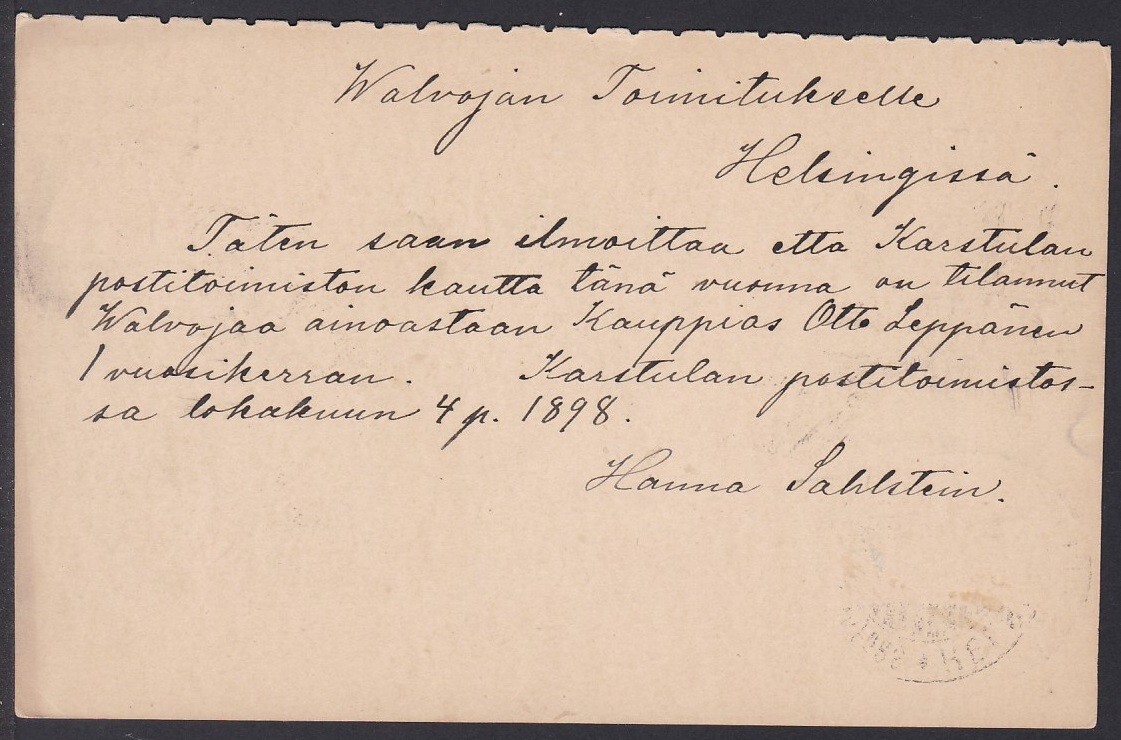 Walvojan Toimitukselle
Helsingissä.
Täten saan ilmoittaa että Karstulan
postitoimiston kautta tänä vuonna on tilannut
Walvojaa ainoastaan Kauppias Otto Leppänen
1 vuosikerran. Karstulan postitoimistos-
sa lokakuun 4 p. 1898.
Hanna Sahlstein.